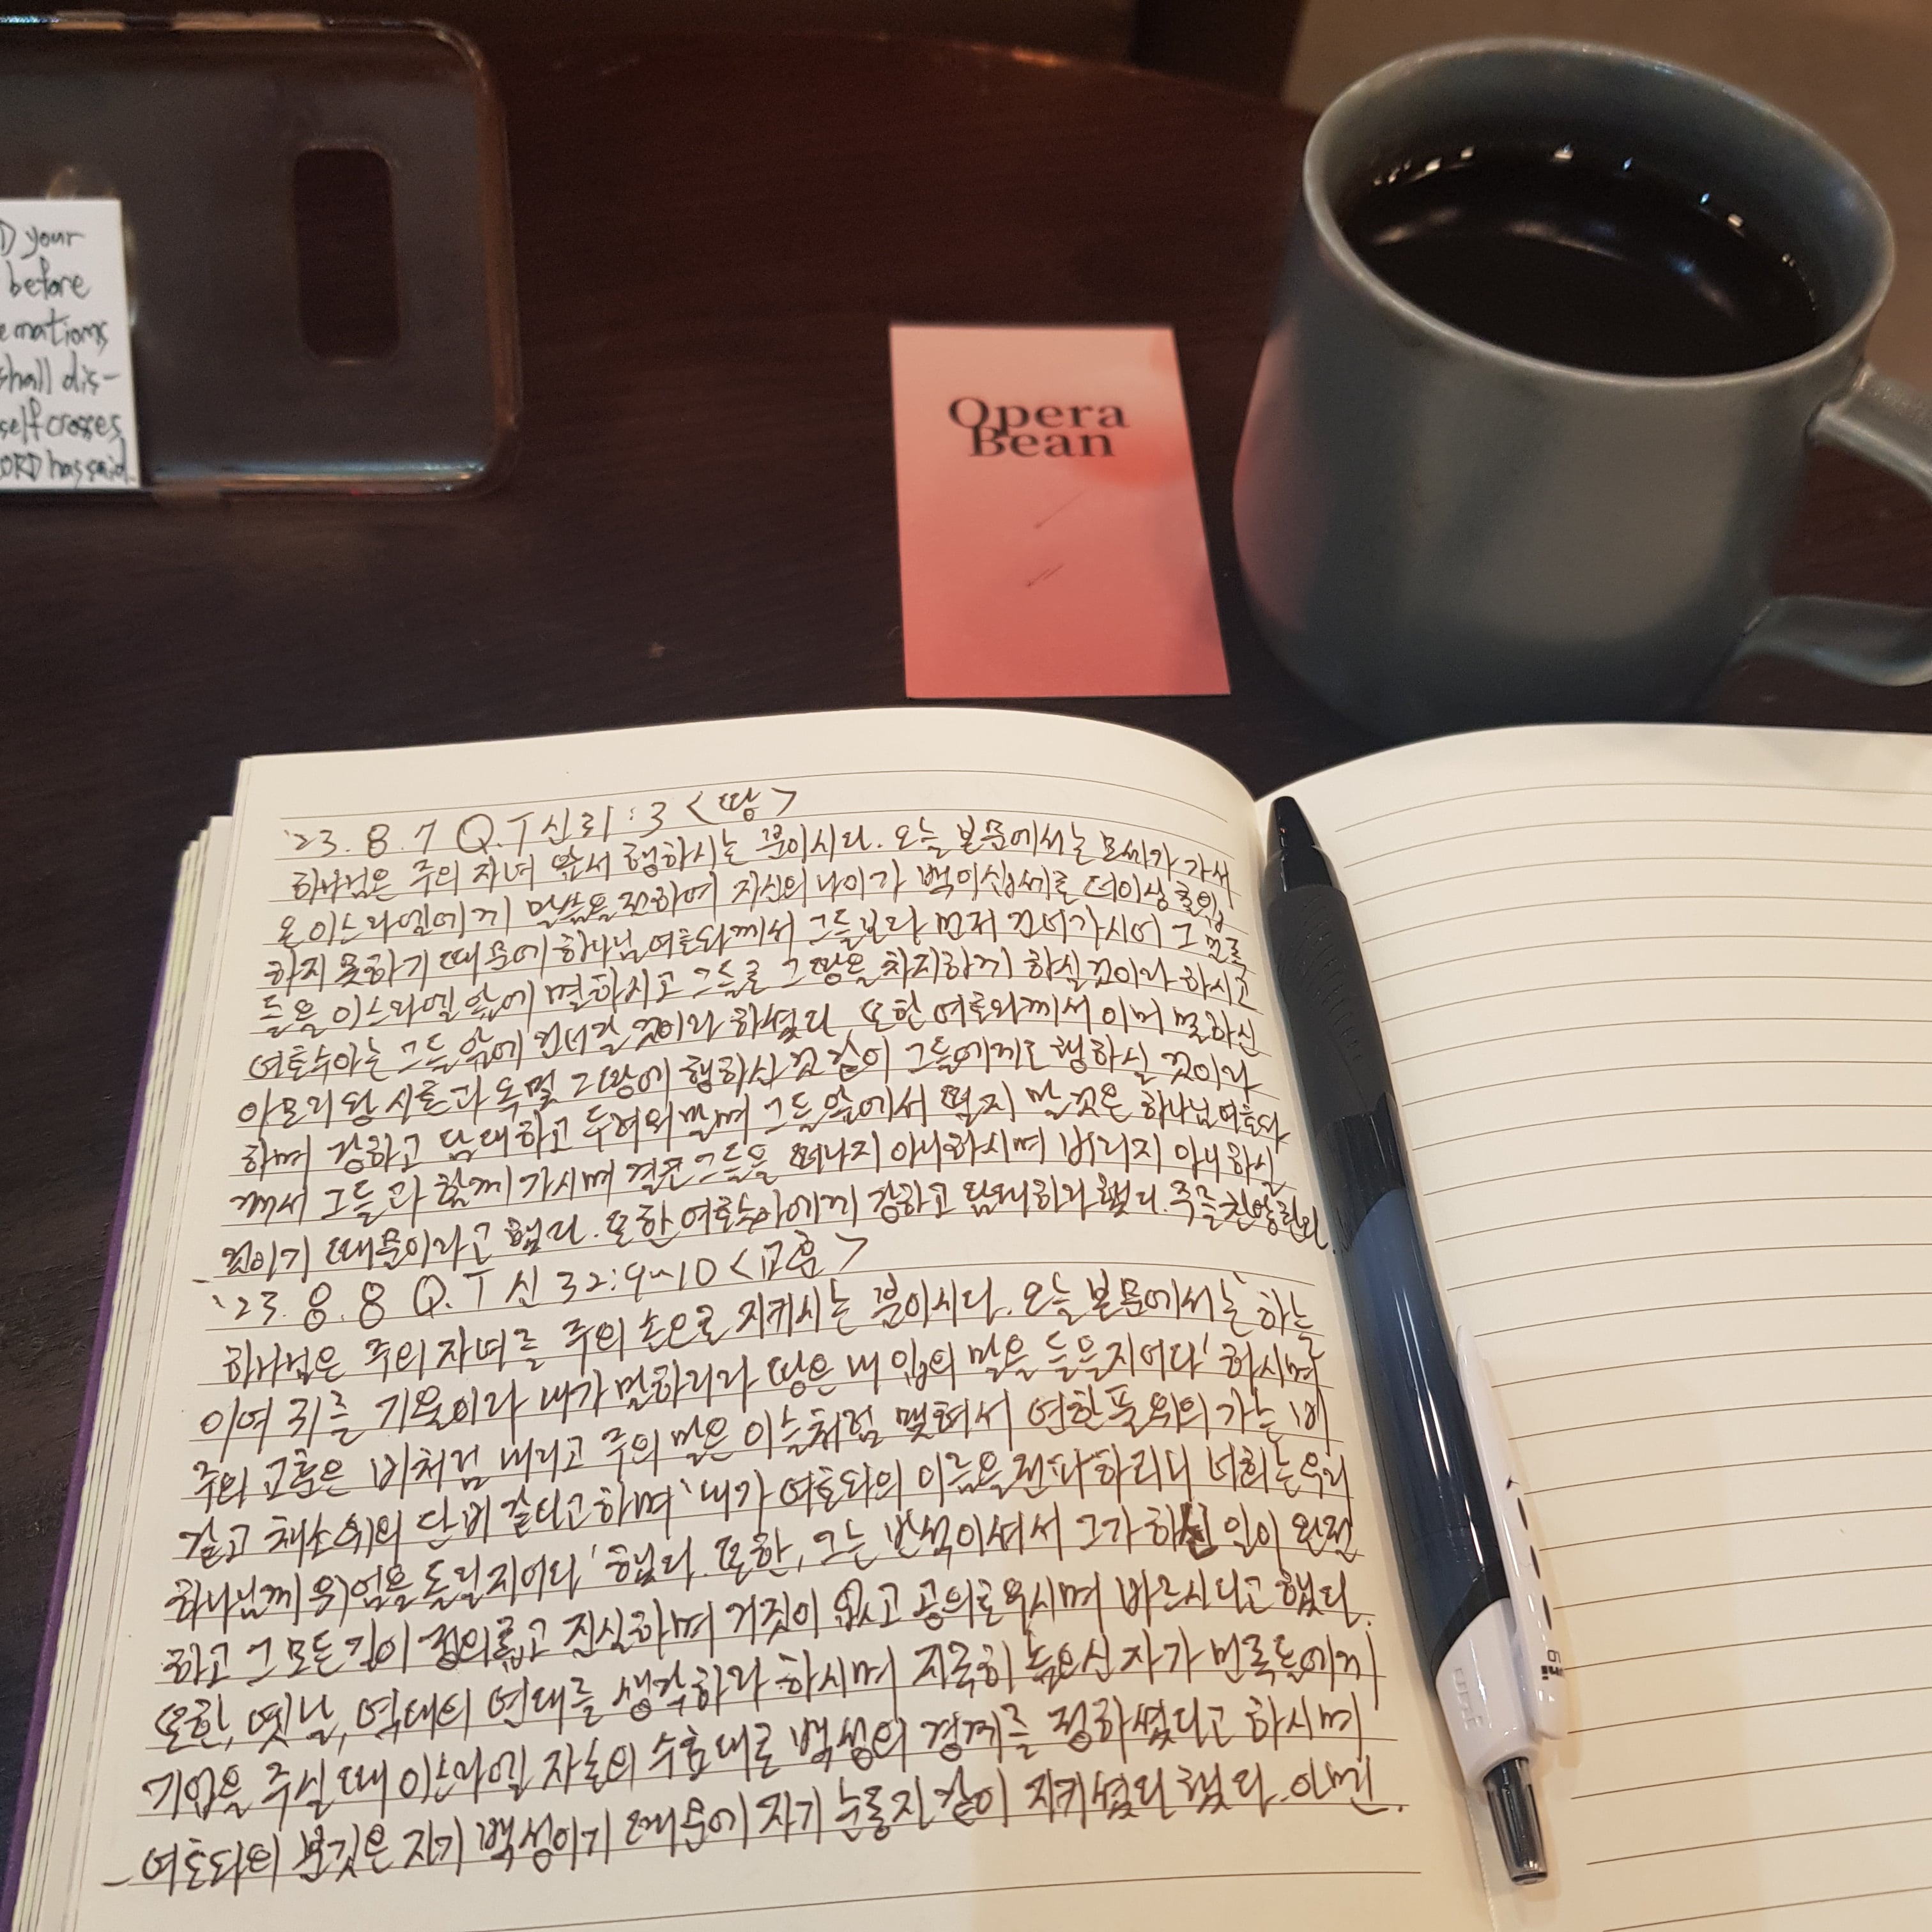 D your
before
e nations
shall dis-
self crosses
ORD has said.
Opera
Bean
'23. 8. 7 Q.T 신 31:3 <땅>
하나님은 주의 자녀 앞서 행하시는 분이시다. 오늘 본문에서는 모세가 가서
온 이스라엘에게 말씀을 전하여 자신의 나이가 백이십세로 더이상 출입
하지 못하기 때문에 하나님 여호와께서 그들보다 먼저 건너가시어 그 민족
들을 이스라엘 앞에 멸하시고 그들로 그 땅을 차지하게 하실 것이라 하시고
여호수아는 그들 앞에 건너갈 것이라 하셨다. 또한 여호와께서 이미 멸하신
아모리 왕 시혼과 옥 및 그 땅에 행하신 것 같이 그들에게도 행하실 것이라
하며 강하고 담대하고 두려워 말며 그들 앞에서 떨지 말 것은 하나님 여호와
께서 그들과 함께 가시며 결코 그들을 떠나지 아니하시며 버리지 아니하실
것이기 때문이라고 했다. 또한 여호수아에게 강하고 담대하라 했다. 주를 찬양한다.
'23. 8. 8 Q.T 신 32:9~10 <교훈>
하나님은 주의 자녀를 주의 손으로 지키시는 분이시다. 오늘 본문에서는 '하늘
이여 귀를 기울이라 내가 말하리라 땅은 내 입의 말을 들을지어다' 하시며
주의 교훈은 비처럼 내리고 주의 말은 이슬처럼 맺혀서 연한 풀 위의 가는 비
같고 채소 위의 단비 같다고 하며 '내가 여호와의 이름을 전파하리니 너희는 우리
하나님께 위엄을 돌릴지어다' 했다. 또한, 그는 반석이셔서 그가 하신 일이 완전
하고 그 모든 길이 정의롭고 진실하며 거짓이 없고 공의로우시며 바르시다고 했다.
또한, 옛날, 역대의 연대를 생각하라 하시며 지극히 높으신 자가 민족들에게
기업을 주실 때 이스라엘 자손의 수효대로 백성의 경계를 정하셨다고 하시며
여호와의 분깃은 자기 백성이기 때문에 자기 눈동자 같이 지키셨다 했다. 아멘.
uni